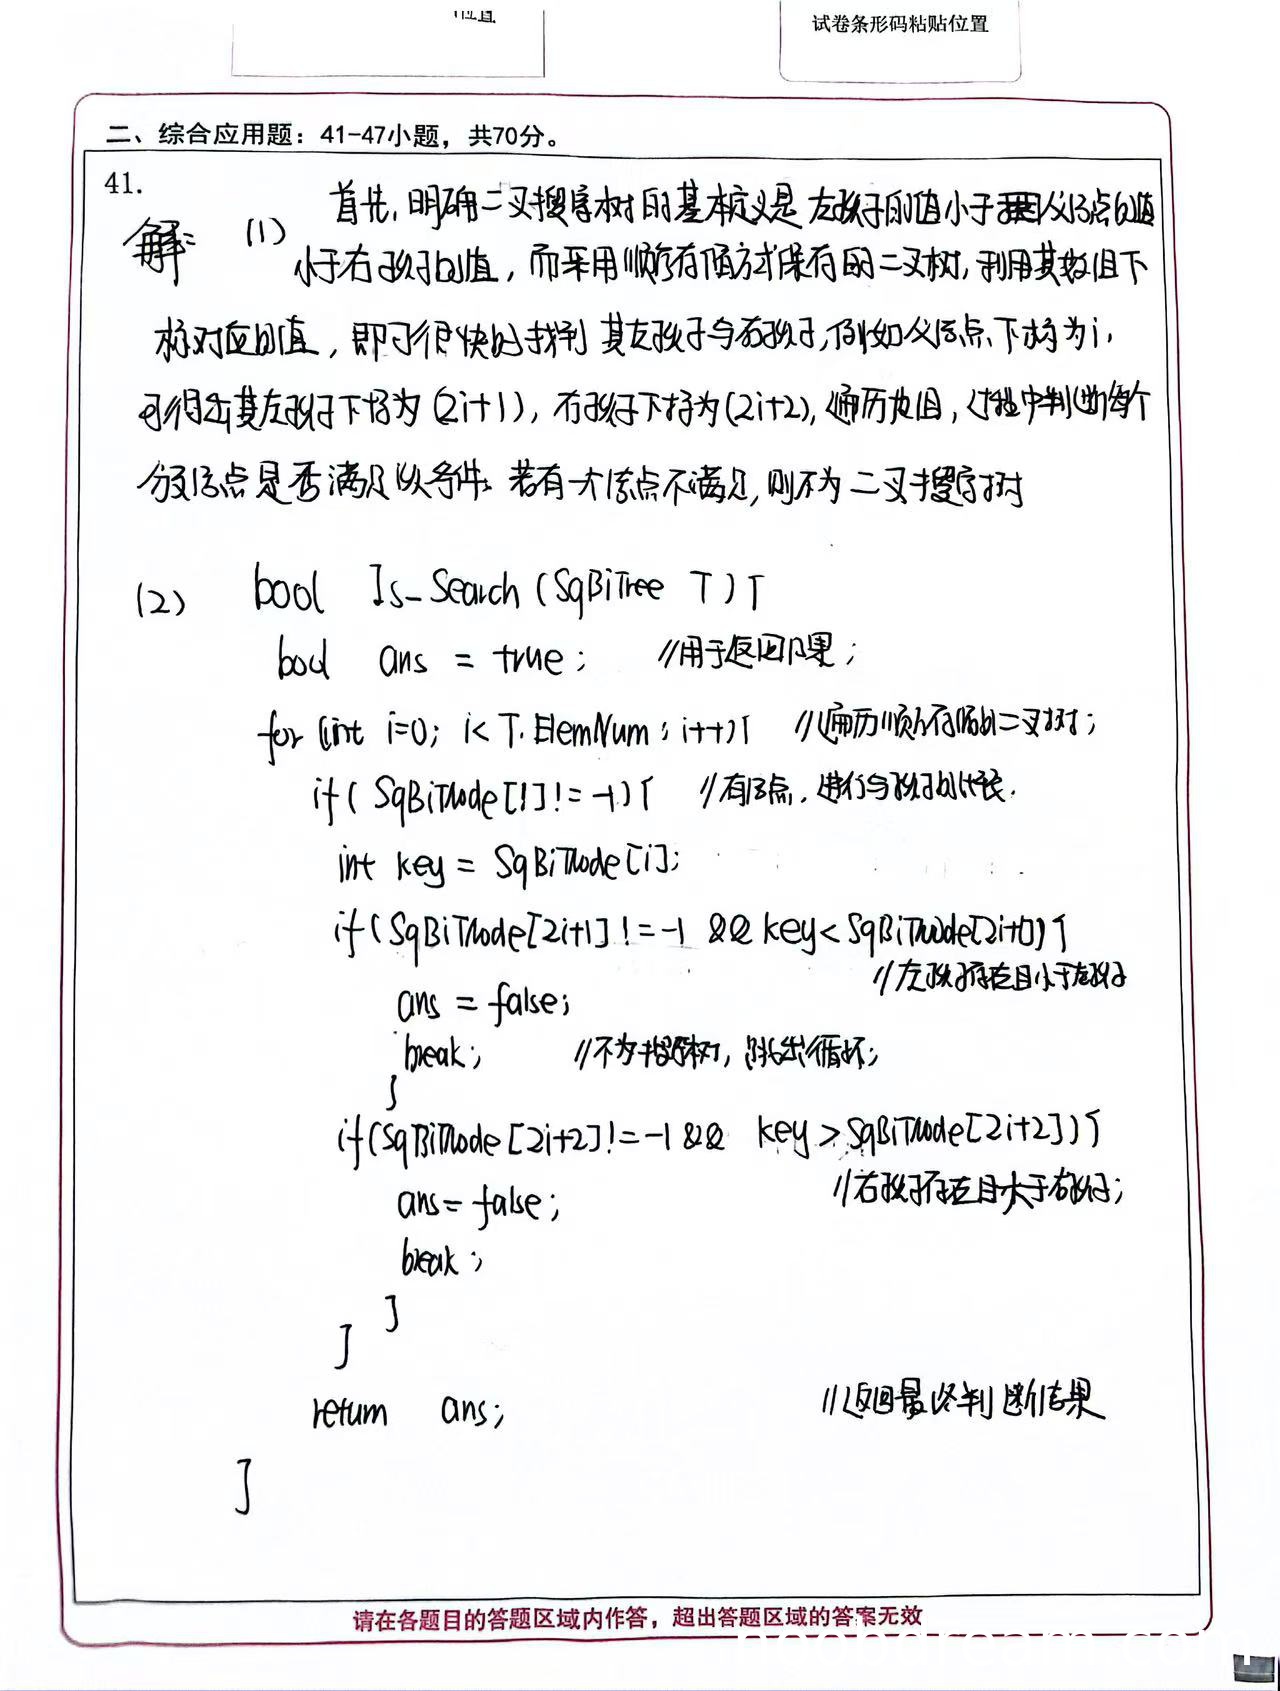 位置
试卷条形码粘贴位置
二、综合应用题：41-47小题，共70分。
41.
解： (1) 首先，明确二叉搜索树的基本定义是左孩子的值小于父结点的值
小于右孩子的值，而采用顺序存储方式保存的二叉树，利用其数组下
标对应的值，即可很快的找到其左孩子与右孩子，例如父结点下标为i，
可得出其左孩子下标为(2i+1)，右孩子下标为(2i+2)，遍历数组，过程中判断每个
分支结点是否满足以条件。若有一个结点不满足，则不为二叉搜索树
(2) bool Is_Search (SqBiTree T) {
bool ans = true; //用于返回结果;
for (int i=0; i< T.ElemNum; i++){ //遍历顺序存储的二叉树;
if( SqBiTNode[i]!= -1){ //有结点，进行与孩子的比较.
int key = SqBiTNode[i];
if(SqBiTNode[2i+1]!=-1 && key<SqBiTNode[2i+1]){
//左孩子存在且小于左孩子
ans = false;
break; //不为搜索树，跳出循环;
}
if(SqBiTNode[2i+2]!=-1 && key>SqBiTNode[2i+2]){
//右孩子存在且大于右孩子;
ans= false;
break;
}
}
return ans; //返回最终判断结果
}
请在各题目的答题区域内作答，超出答题区域的答案无效